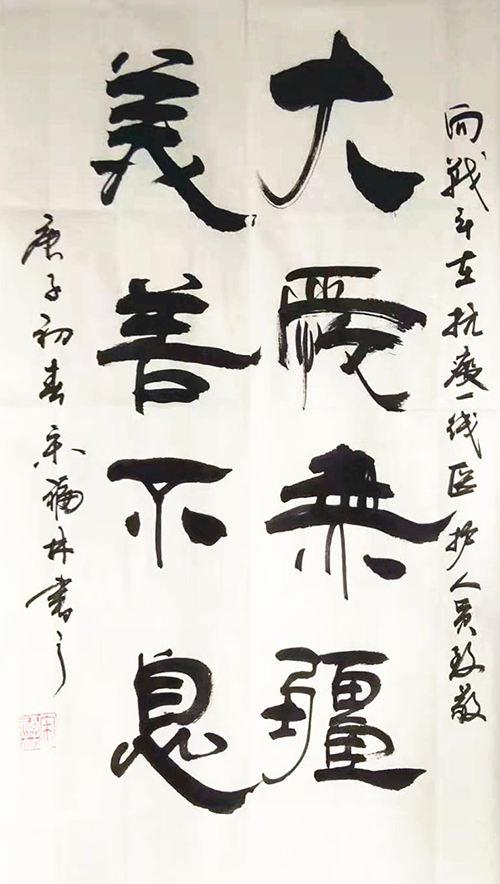 向战斗在抗疫一线医护人员致敬
大爱无疆
美善不息
庚子初春宋福林书